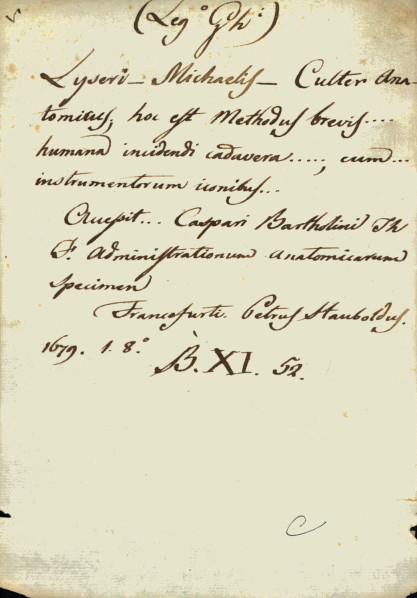 (Leg.º Gh.¹)
Lyseri - Michaelis - Culter Ana-
tomicus, hoc est Methodus brevis....
humana incidendi cadavera....., cum...
instrumentorum iconibus...
Accessit... Caspari Bartholini Th
F. Administrationum anatomicarum
specimen
Francofurti. Petrus Hauboldus.
1679. 1. 8.º
B. XI. 52.
C